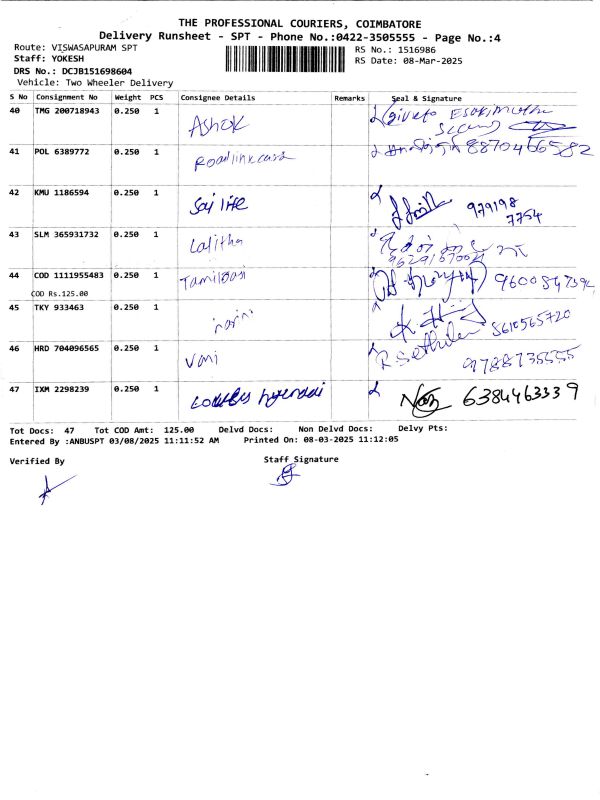 THE PROFESSIONAL COURIERS, COIMBATORE
Delivery Runsheet - SPT - Phone No.:0422-3505555 - Page No.:4
Route: VISWASAPURAM SPT
RS No.: 1516986
Staff: YOKESH
RS Date: 08-Mar-2025
DRS No.: DCJB151698604
Vehicle: Two Wheeler Delivery
S No Consignment No Weight PCS Consignee Details Remarks Seal & Signature
40 TMG 200718943 0.250 1 Ashok
41 POL 6389772 0.250 1 Roadlinkcard 8870466582
42 KMU 1186594 0.250 1 Sai life 979198
7754
43 SLM 365931732 0.250 1 Lalitha
44 COD 1111955483 0.250 1 Tamilrasi
COD Rs.125.00
45 TKY 933463 0.250 1
46 HRD 704096565 0.250 1 Vani
47 IXM 2298239 0.250 1 6384463339
Tot Docs: 47 Tot COD Amt: 125.00 Delvd Docs: Non Delvd Docs: Delvy Pts:
Entered By :ANBUSPT 03/08/2025 11:11:52 AM Printed On: 08-03-2025 11:12:05
Verified By Staff Signature